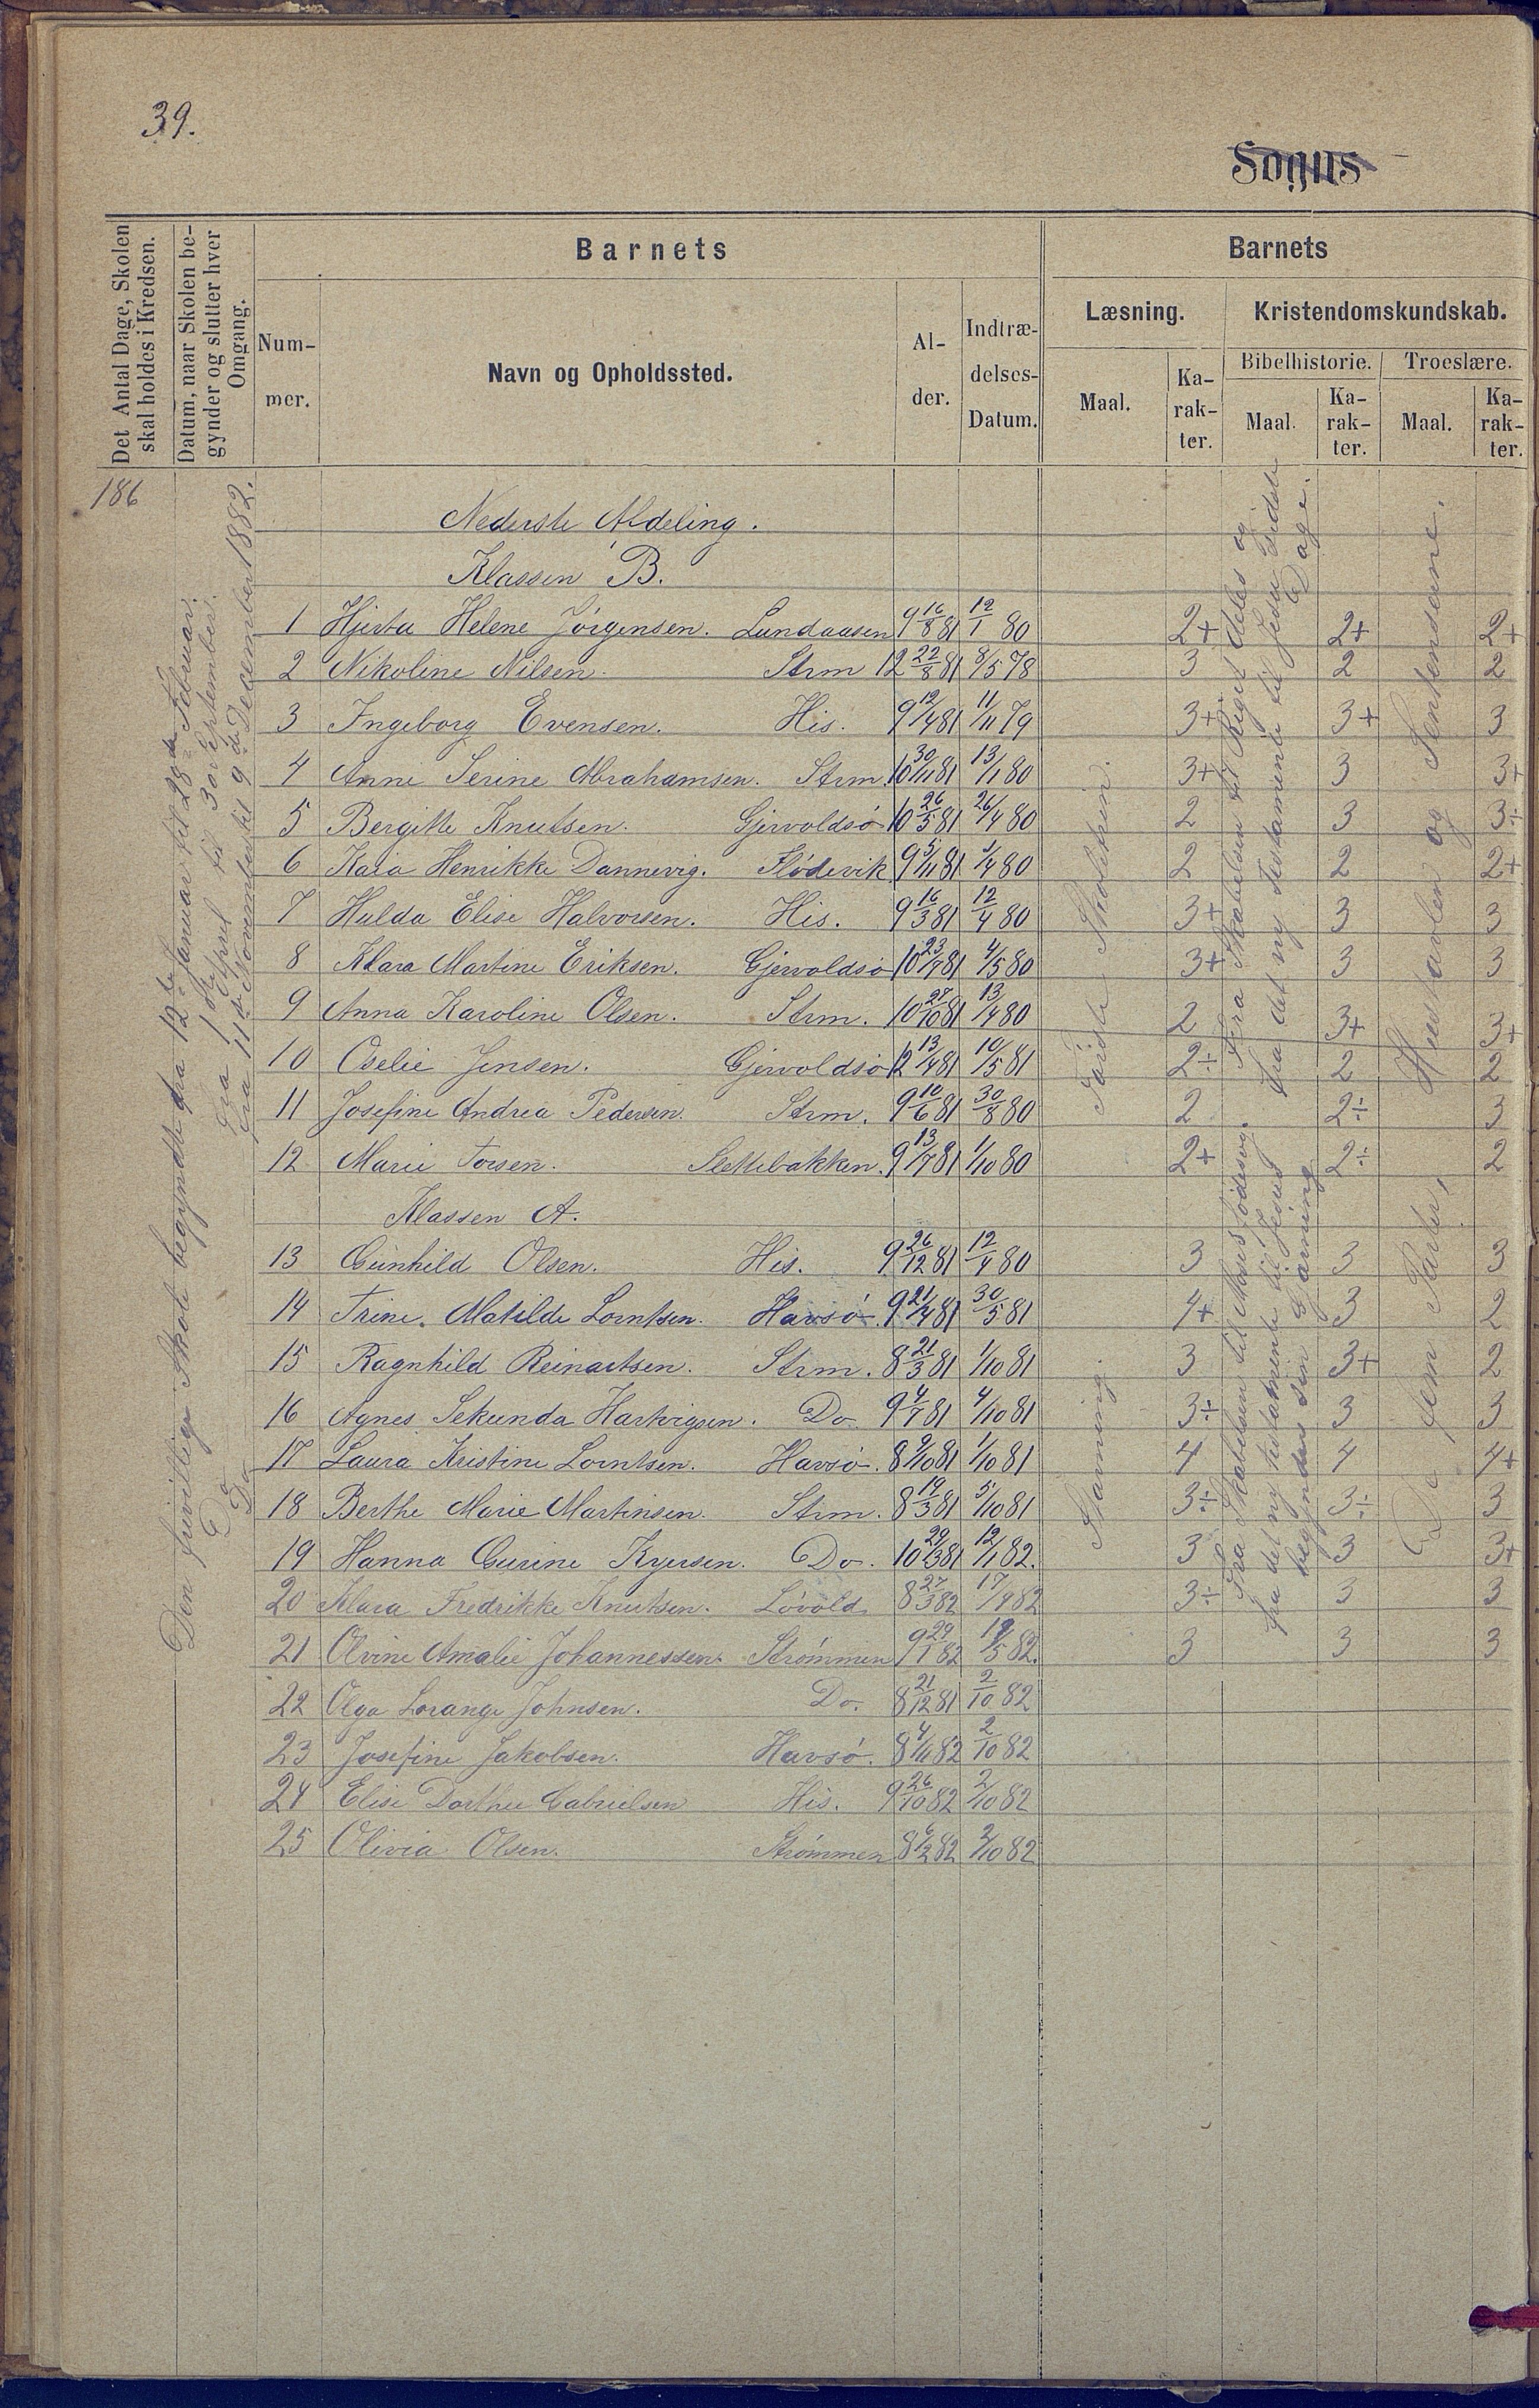 39.
Sogns
Det Antal Dage, Skolen
skal holdes i Kredsen.
Datum, naar Skolen be-
gynder og slutter hver
Omgang.
Barnets
Num-
mer.
Navn og Opholdssted.
Al-
der.
Indtræ-
delses-
Datum.
Barnets
Læsning.
Kristendomskundskab.
Maal.
Ka-
rak-
ter.
Bibelhistorie.
Troeslære.
Maal.
Ka-
rak-
ter.
Maal.
Ka-
rak-
ter.
186
Den frivillige Skole begyndte fra 12te Januar til 28de Februar.
Do fra 1ste April til 30te September.
Do fra 11te November til 9de December 1882.
Nederste Afdeling.
Klassen B.
1 Hjerta Helene Jörgensen. Lundaasen 9 16/8 81 12/1 80 2+ 2+ 2+
2 Nikoline Nilsen. Strm 12 22/8 81 8/5 78 3 2 2
3 Ingeborg Evensen. His. 9 12/4 81 11/11 79 3+ 3+ 3
4 Anne Serine Abrahamsen. Strm. 10 30/11 81 13/1 80 3+ 3 3+
5 Bergitte Knutsen. Gjervoldsö 10 26/5 81 26/4 80 2 3 3÷
6 Kaia Henrikke Dannevig. Flödevik 9 5/11 81 1/4 80 2 2 2+
7 Hulda Elise Halvorsen. His. 9 16/3 81 12/4 80 3+ 3 3
8 Klara Martine Eriksen. Gjervoldsö 10 23/7 81 4/5 80 3+ 3 3
9 Anna Karoline Olsen. Strm. 10 27/10 81 13/4 80 2 3+ 3+
10 Oselie Jensen. Gjervoldsö 12 13/4 81 10/5 81 2÷ 2 2
11 Josefine Andrea Pedersen. Strm. 9 10/6 81 30/8 80 2 2÷ 3
12 Marie Torsen. Slettebakken. 9 13/7 81 1/10 80 2+ 2÷ 2
Første Skoletrin.
Fra Skabelsen til Riget deles og
fra det ny Testamente til Jesu sidste
Dage.
Hustavlen og Sentensene.
Klassen A.
13 Gunhild Olsen. His. 9 26/12 81 12/4 80 3 3 3
14 Trine Matilde Lorntsen. Havsö. 9 21/4 81 30/5 81 4+ 3 2
15 Ragnhild Reinartsen. Strm. 8 21/3 81 1/10 81 3 3+ 2
16 Agnes Sekunda Hartvigsen. Do 9 4/7 81 4/10 81 3÷ 3 3
17 Laura Kristine Lorntsen. Havsö. 8 9/10 81 1/10 81 4 4 4+
18 Berthe Marie Martinsen. Strm. 8 19/3 81 5/10 81 3÷ 3÷ 3
19 Hanna Gurine Kyersen. Do. 10 29/3 81 12/1 82. 3 3 3+
20 Klara Fredrikke Knutsen. Lövold 8 27/3 82 17/4 82 3÷ 3 3
21 Olvine Amalie Johannessen. Strömmen 9 29/1 82 19/5 82. 3 3 3
22 Olga Lorange Johnsen. Do. 8 21/12 81 2/10 82
23 Josefine Jakobsen. Havsö. 8 4/11 82 2/10 82
24 Elise Dorthee Gabrielsen His. 9 26/10 82 2/10 82
25 Olivia Olsen. Strömmen 8 6/2 82 2/10 82
Stavning.
Fra Skabelsen til Moses Fødsel og
fra det ny Testamente til Jesus
begynder sin Gjerning
De fem Parter,